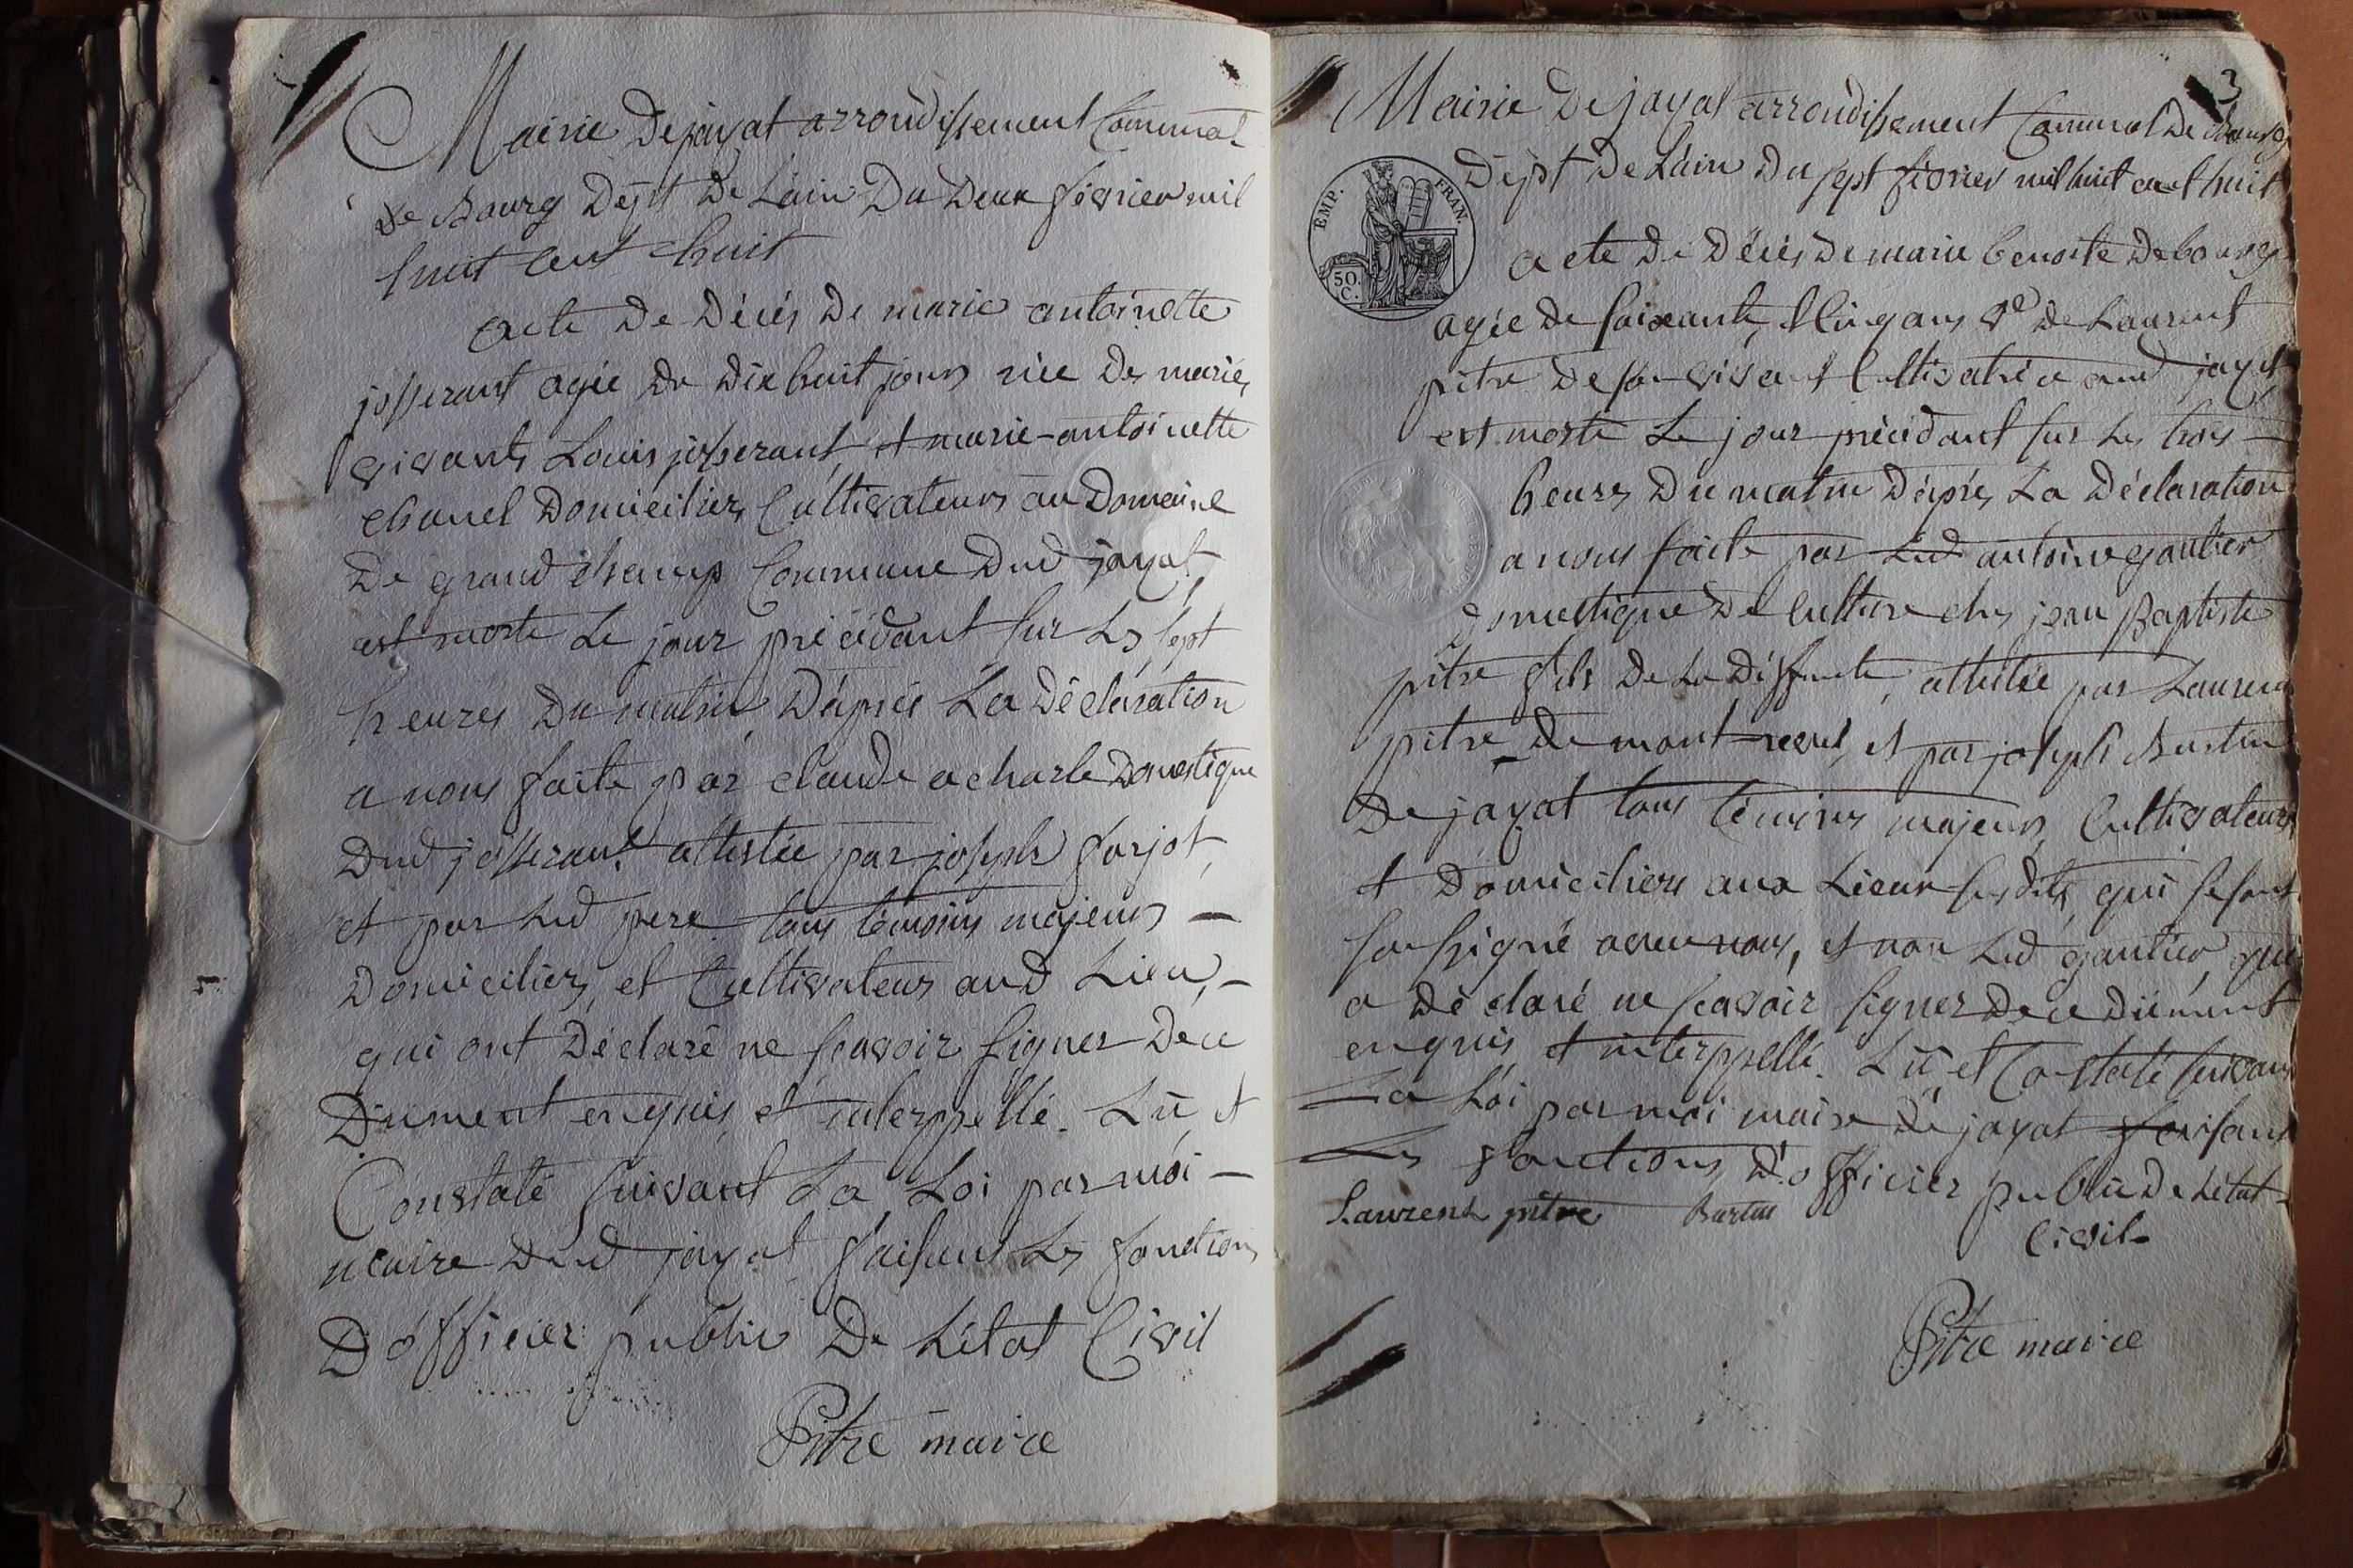 Mairie De jayat arrondissement Communal
de Bourg Dept De L'ain Du Deux fevrier mil
huit cent huit
acte De Décès De marie antoinette
josserant agée De Dix huit jours née De mariés
vivants Louis josserant et marie-antoinette
chanel Domiciliés Cultivateurs au Domaine
De grand champ Commune Dud jayat,
est morte Le jour précédant sur Les sept
heures Du matin D'après La Déclaration
a nous faite par claude acharle Domestique
Dud josserant attestée par joseph farjot,
et par Led pere tous témoins majeurs —
Domiciliés, et Cultivateurs aud Lieu, —
qui ont Déclaré ne scavoir signer De ce
Dument enquis et interppellé. Lû et
Constaté suivant La Loi par moi —
maire Dud jayat faisant Les fonctions
D'officier public De L'état Civil
Pitre maire
3
Mairie De jayat arrondissement Communal De Bourg
Dépt De L'ain Du sept fevrier mil huit cent huit
EMP. FRAN.
50. C.
acte De Décès De marie benoite Debourg
agée De soixante et cinq ans Ve De Laurent
pitre De son vivant Cultivatrice aud jayat,
est morte Le jour précédant sur Les trois —
heures Du matin D'après La Déclaration
a nous faite par Led antoine gautier
Domestique De Culture chez jean Baptiste
pitre fils De La Deffunte, attestée par Laurent
pitre De mont-revel, et par joseph Burtin
De jayat tous témoins majeurs, Cultivateurs
et Domiciliers aux Lieux susdits, qui se sont
soussigné avec nous, et non Led gautier qui
a Déclaré ne scavoir signer De ce Dument
enquis et interppellé. Lû et Constaté suivant
La Loi par moi maire De jayat faisant
Les fonctions D'officier public De L'état
Civil-
Laurent pitre Burtin
Pitre maire